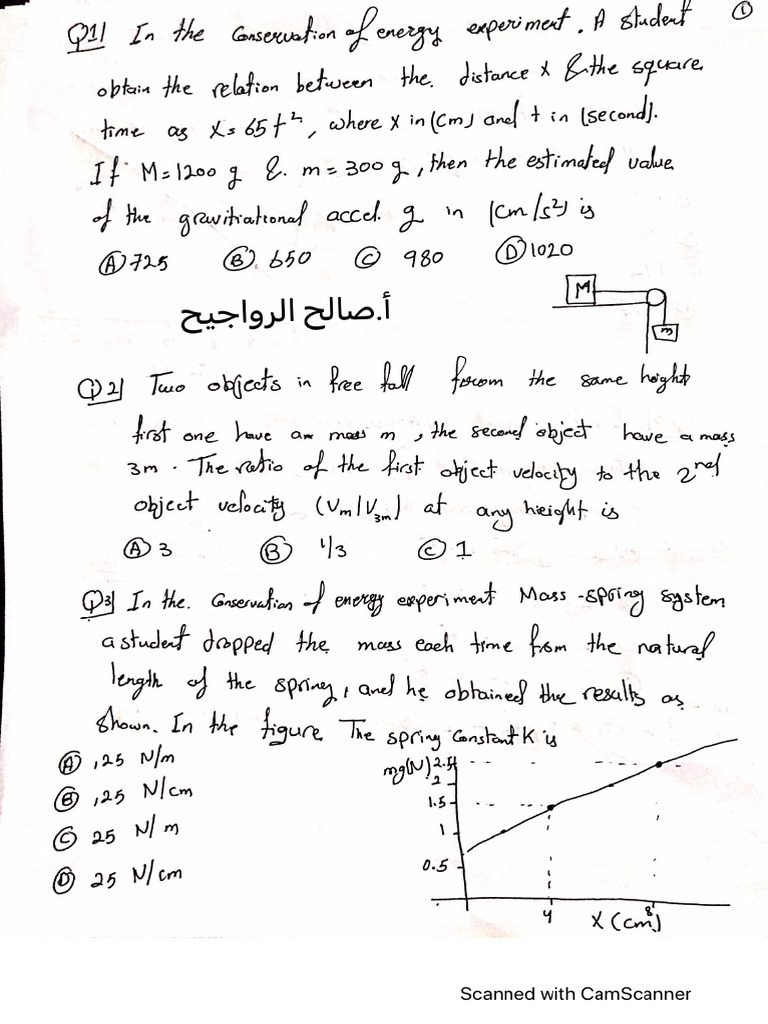 Q1/ In the Conservation of energy experiment. A student ①
obtain the relation between the. distance x & the square
time as x = 65 t², where x in (cm) and t in (second).
If M = 1200 g & m = 300 g, then the estimated value
of the gravitrational accel. g in (cm/s²) is
Ⓐ 725 Ⓑ 650 Ⓒ 980 Ⓓ 1020
M
أ.صالح الرواجيح
m
Q2/ Two objects in free fall from the same height
first one have an mass m, the second object have a mass
3m. The ratio of the first object velocity to the 2nd
object velocity (Vm/V3m) at any height is
Ⓐ 3 Ⓑ 1/3 Ⓒ 1
Q3/ In the. Conservation of energy experiment Mass-spring system
a student dropped the mass each time from the natural
length of the spring, and he obtained the results as
shown. In the figure The spring Constant K is
Ⓐ ,25 N/m
Ⓑ ,25 N/cm
Ⓒ 25 N/m
Ⓓ 25 N/cm
mg(N) 2.5
2
1.5
1
0.5
4 8
X (cm)
Scanned with CamScanner